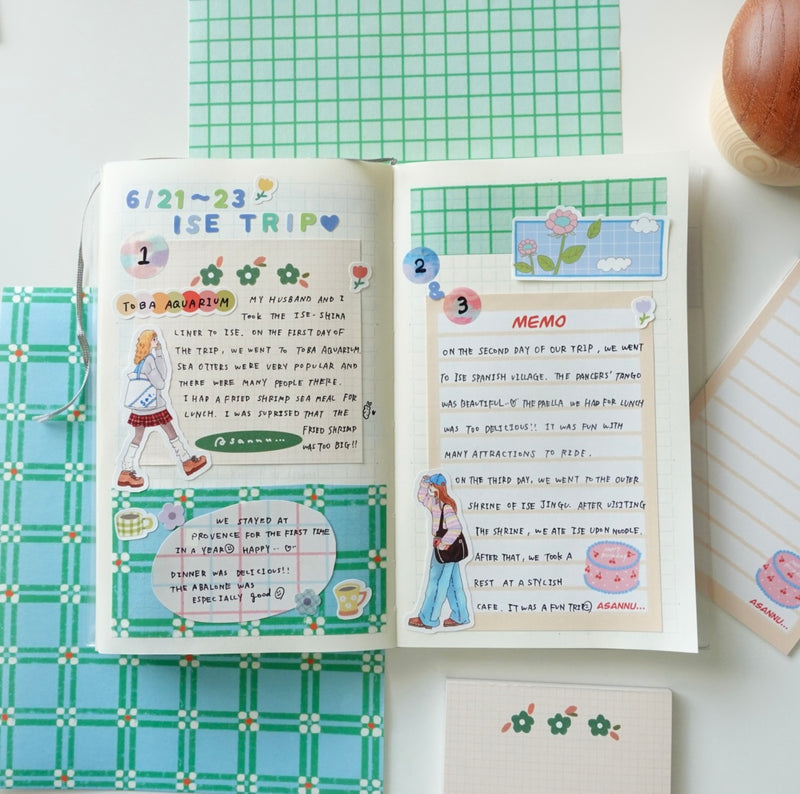 6/21~23
ISE TRIP♥
1
TOBA AQUARIUM
MY HUSBAND AND I
TOOK THE ISE-SHIMA
LINER TO ISE. ON THE FIRST DAY OF
THE TRIP, WE WENT TO TOBA AQUARIUM.
SEA OTTERS WERE VERY POPULAR AND
THERE WERE MANY PEOPLE THERE.
I HAD A FRIED SHRIMP SEA MEAL FOR
LUNCH. I WAS SUPRISED THAT THE
FRIED SHRIMP
WAS TOO BIG!!
Asannu...
WE STAYED AT
PROVENCE FOR THE FIRST TIME
IN A YEAR☺ HAPPY..♡
DINNER WAS DELICIOUS!!
THE ABALONE WAS
ESPECIALLY good☺
2
&
3
MEMO
ON THE SECOND DAY OF OUR TRIP, WE WENT
TO ISE SPANISH VILLAGE. THE DANCERS' TANGO
WAS BEAUTIFUL..♡ THE PAELLA WE HAD FOR LUNCH
WAS TOO DELICIOUS!! IT WAS FUN WITH
MANY ATTRACTIONS TO RIDE.
ON THE THIRD DAY, WE WENT TO THE OUTER
SHRINE OF ISE JINGU. AFTER VISITING
THE SHRINE, WE ATE ISE UDON NOODLE.
AFTER THAT, WE TOOK A
REST AT A STYLISH
CAFE. IT WAS A FUN TRIP☺
ASANNU...
ASANNU...